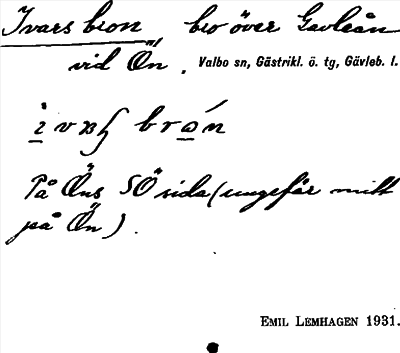 Ivars bron, bro över Gavleån
vid Ön. Valbo sn, Gästrikl. ö. tg, Gävleb. l.
På Öns SÖ sida (ungefär mitt
på Ön).
EMIL LEMHAGEN 1931.